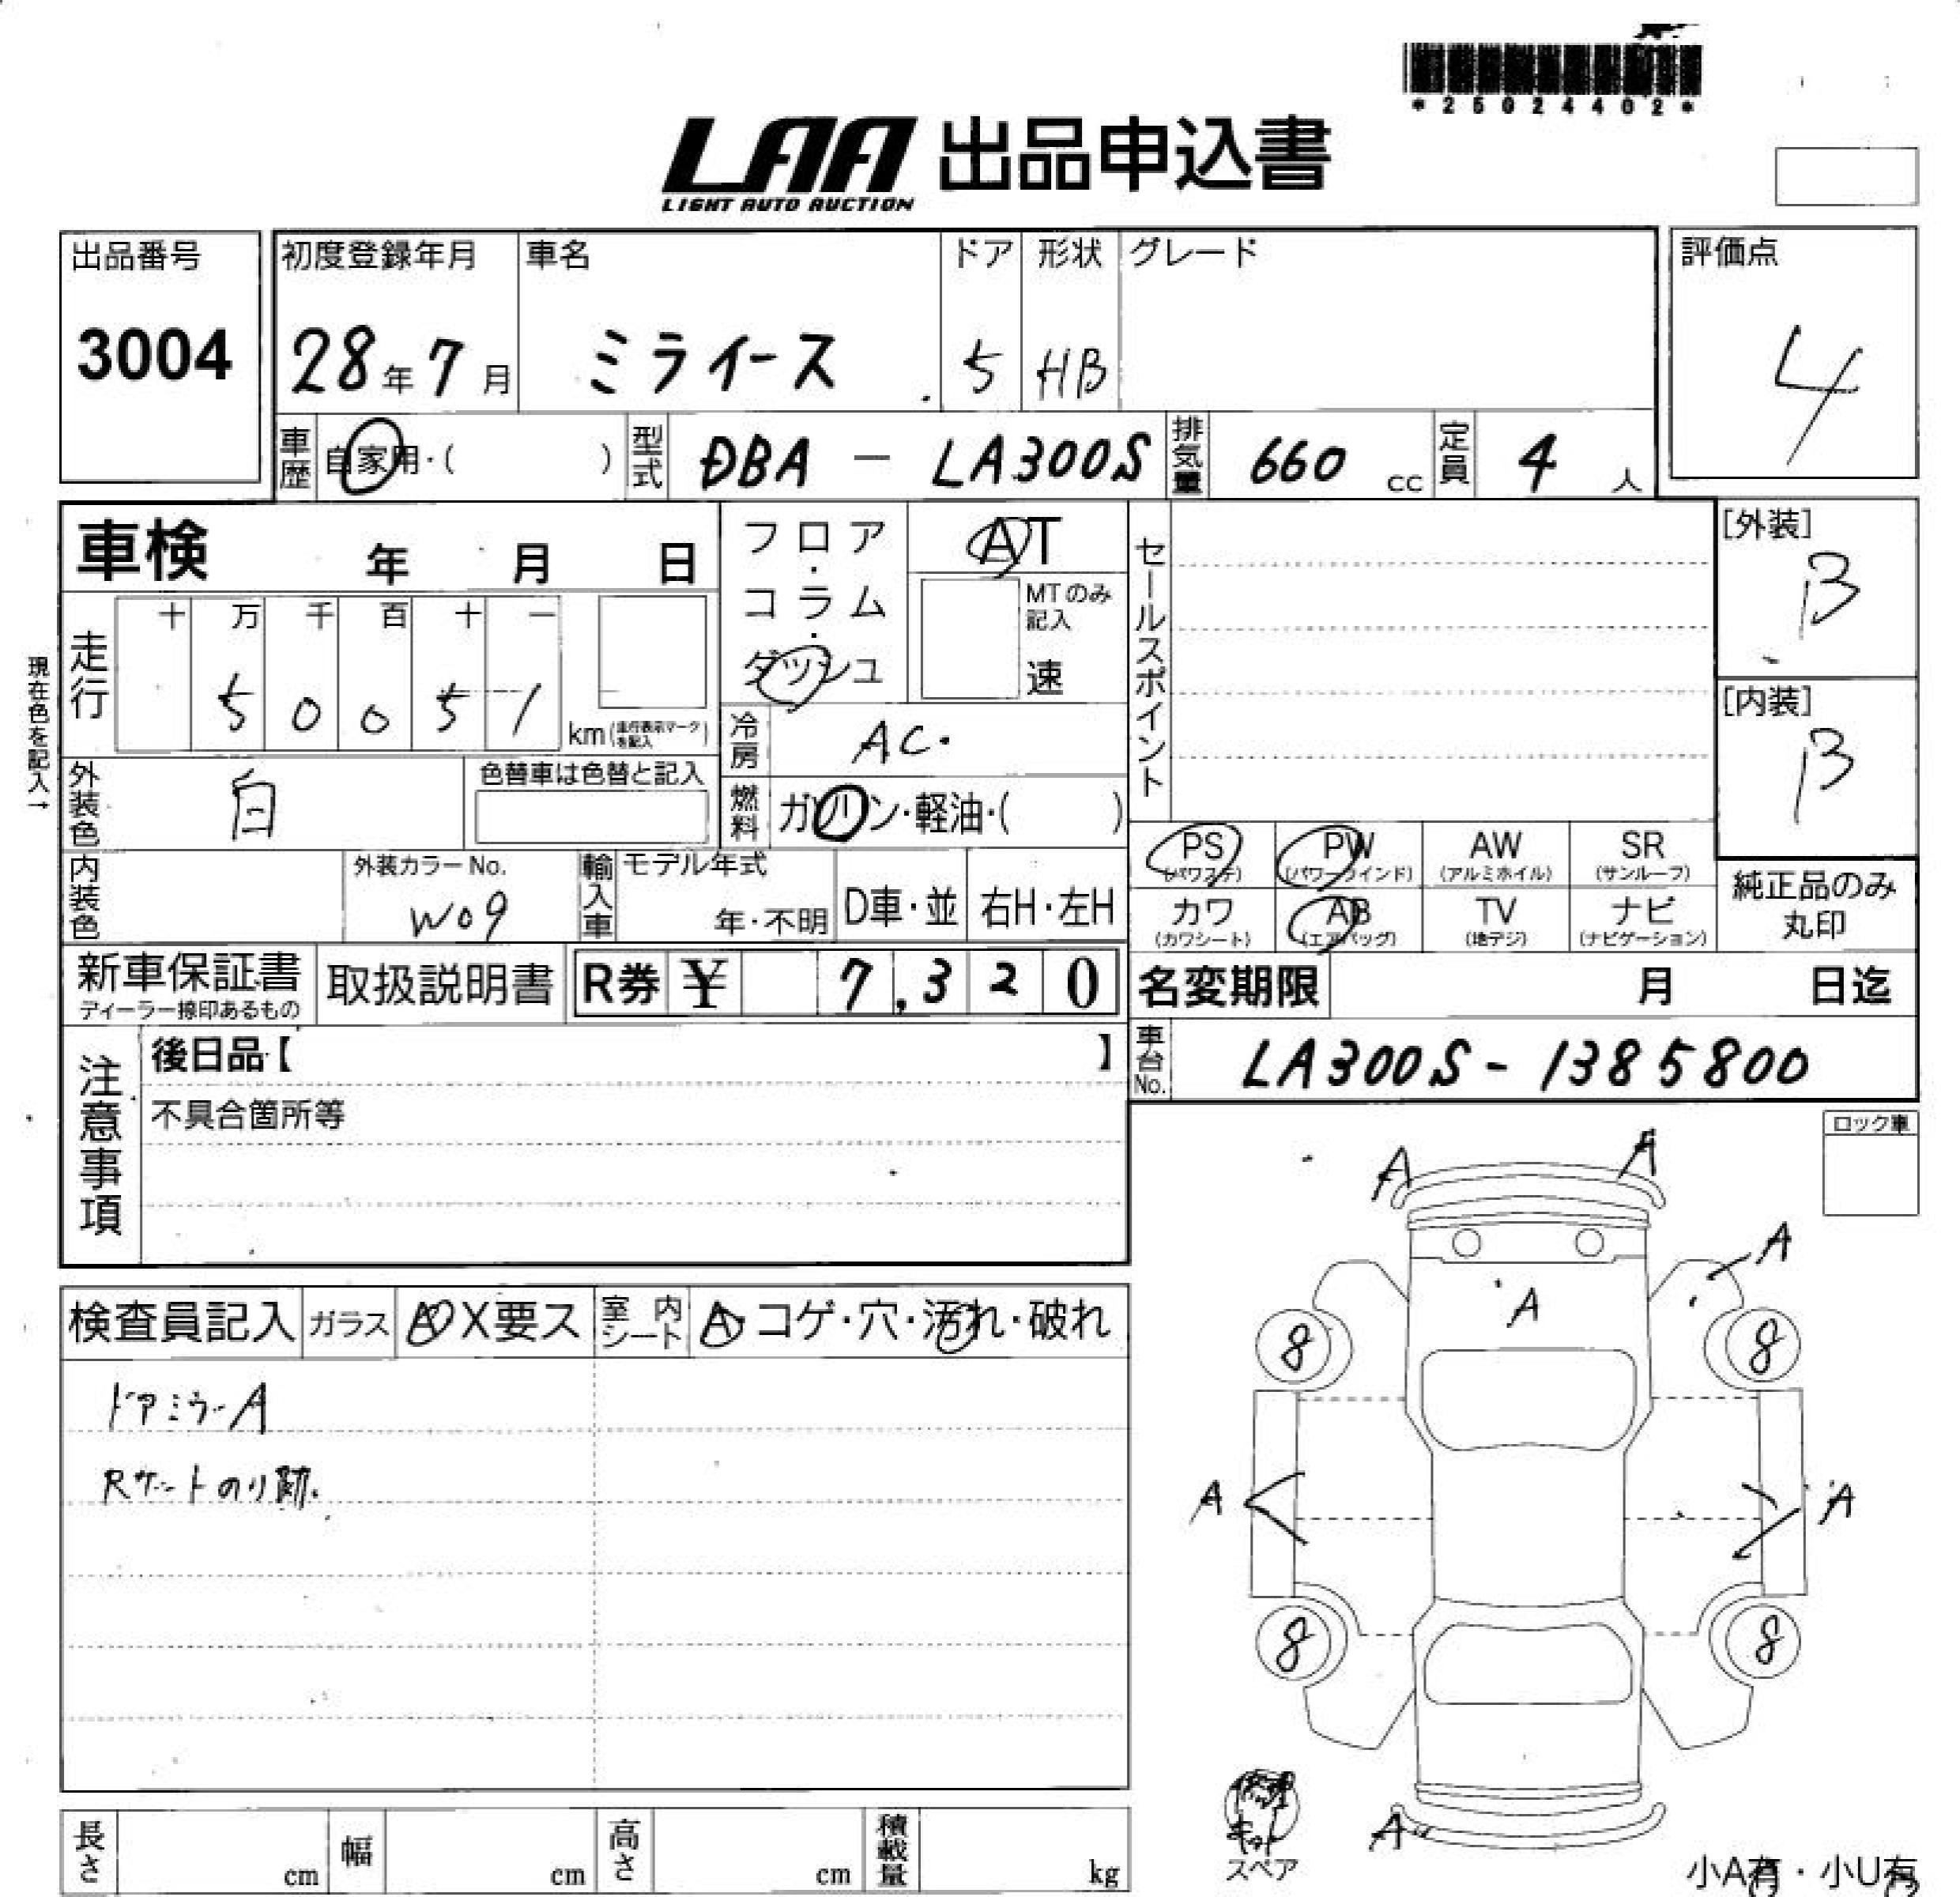 *25024402*
LAA 出品申込書
LIGHT AUTO AUCTION
出品番号 初度登録年月 車名 ドア 形状 グレード 評価点
3004 28年7月 ミライース 5 HB 4
車歴 自家用・( ) 型式 DBA - LA300S 排気量 660 cc 定員 4 人
車検 年 月 日
フロア・コラム・ダッシュ
AT
MTのみ記入
速
セールスポイント
[外装]
B
[内装]
B
現在色を記入→
走行 十 万 千 百 十 一
5 0 0 5 1
km(走行表示マークを記入)
冷房 AC.
外装色 白 色替車は色替と記入
燃料 ガソリン・軽油・( )
PS PW AW SR
(パワステ) (パワーウインド) (アルミホイル) (サンルーフ)
カワ AB TV ナビ
(カワシート) (エアバッグ) (地デジ) (ナビゲーション)
純正品のみ
丸印
内装色 外装カラーNo. W09 輸入車 モデル年式 年・不明 D車・並 右H・左H
新車保証書
ディーラー捺印あるもの
取扱説明書 R券 ¥ 7,320
名変期限 月 日迄
車台No. LA300S-1385800
注意事項
後日品【 】
不具合箇所等
ロック車
検査員記入 ガラス A X要ス 室内シート A・コゲ・穴・汚れ・破れ
ドアミラーA
Rゲートのり跡.
A A
A
A
8 8
A A
8 8
A
修理
キット
スペア
小A有・小U有
長さ cm 幅 cm 高さ cm 積載量 kg